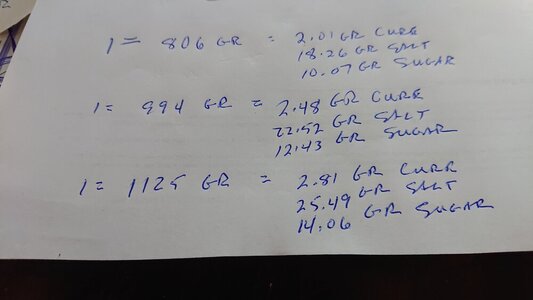 1 = 806 GR = 2.01 GR CURE
18.26 GR SALT
10.07 GR SUGAR
1 = 994 GR = 2.48 GR CURE
22.52 GR SALT
12.43 GR SUGAR
1 = 1125 GR = 2.81 GR CURE
25.49 GR SALT
14.06 GR SUGAR